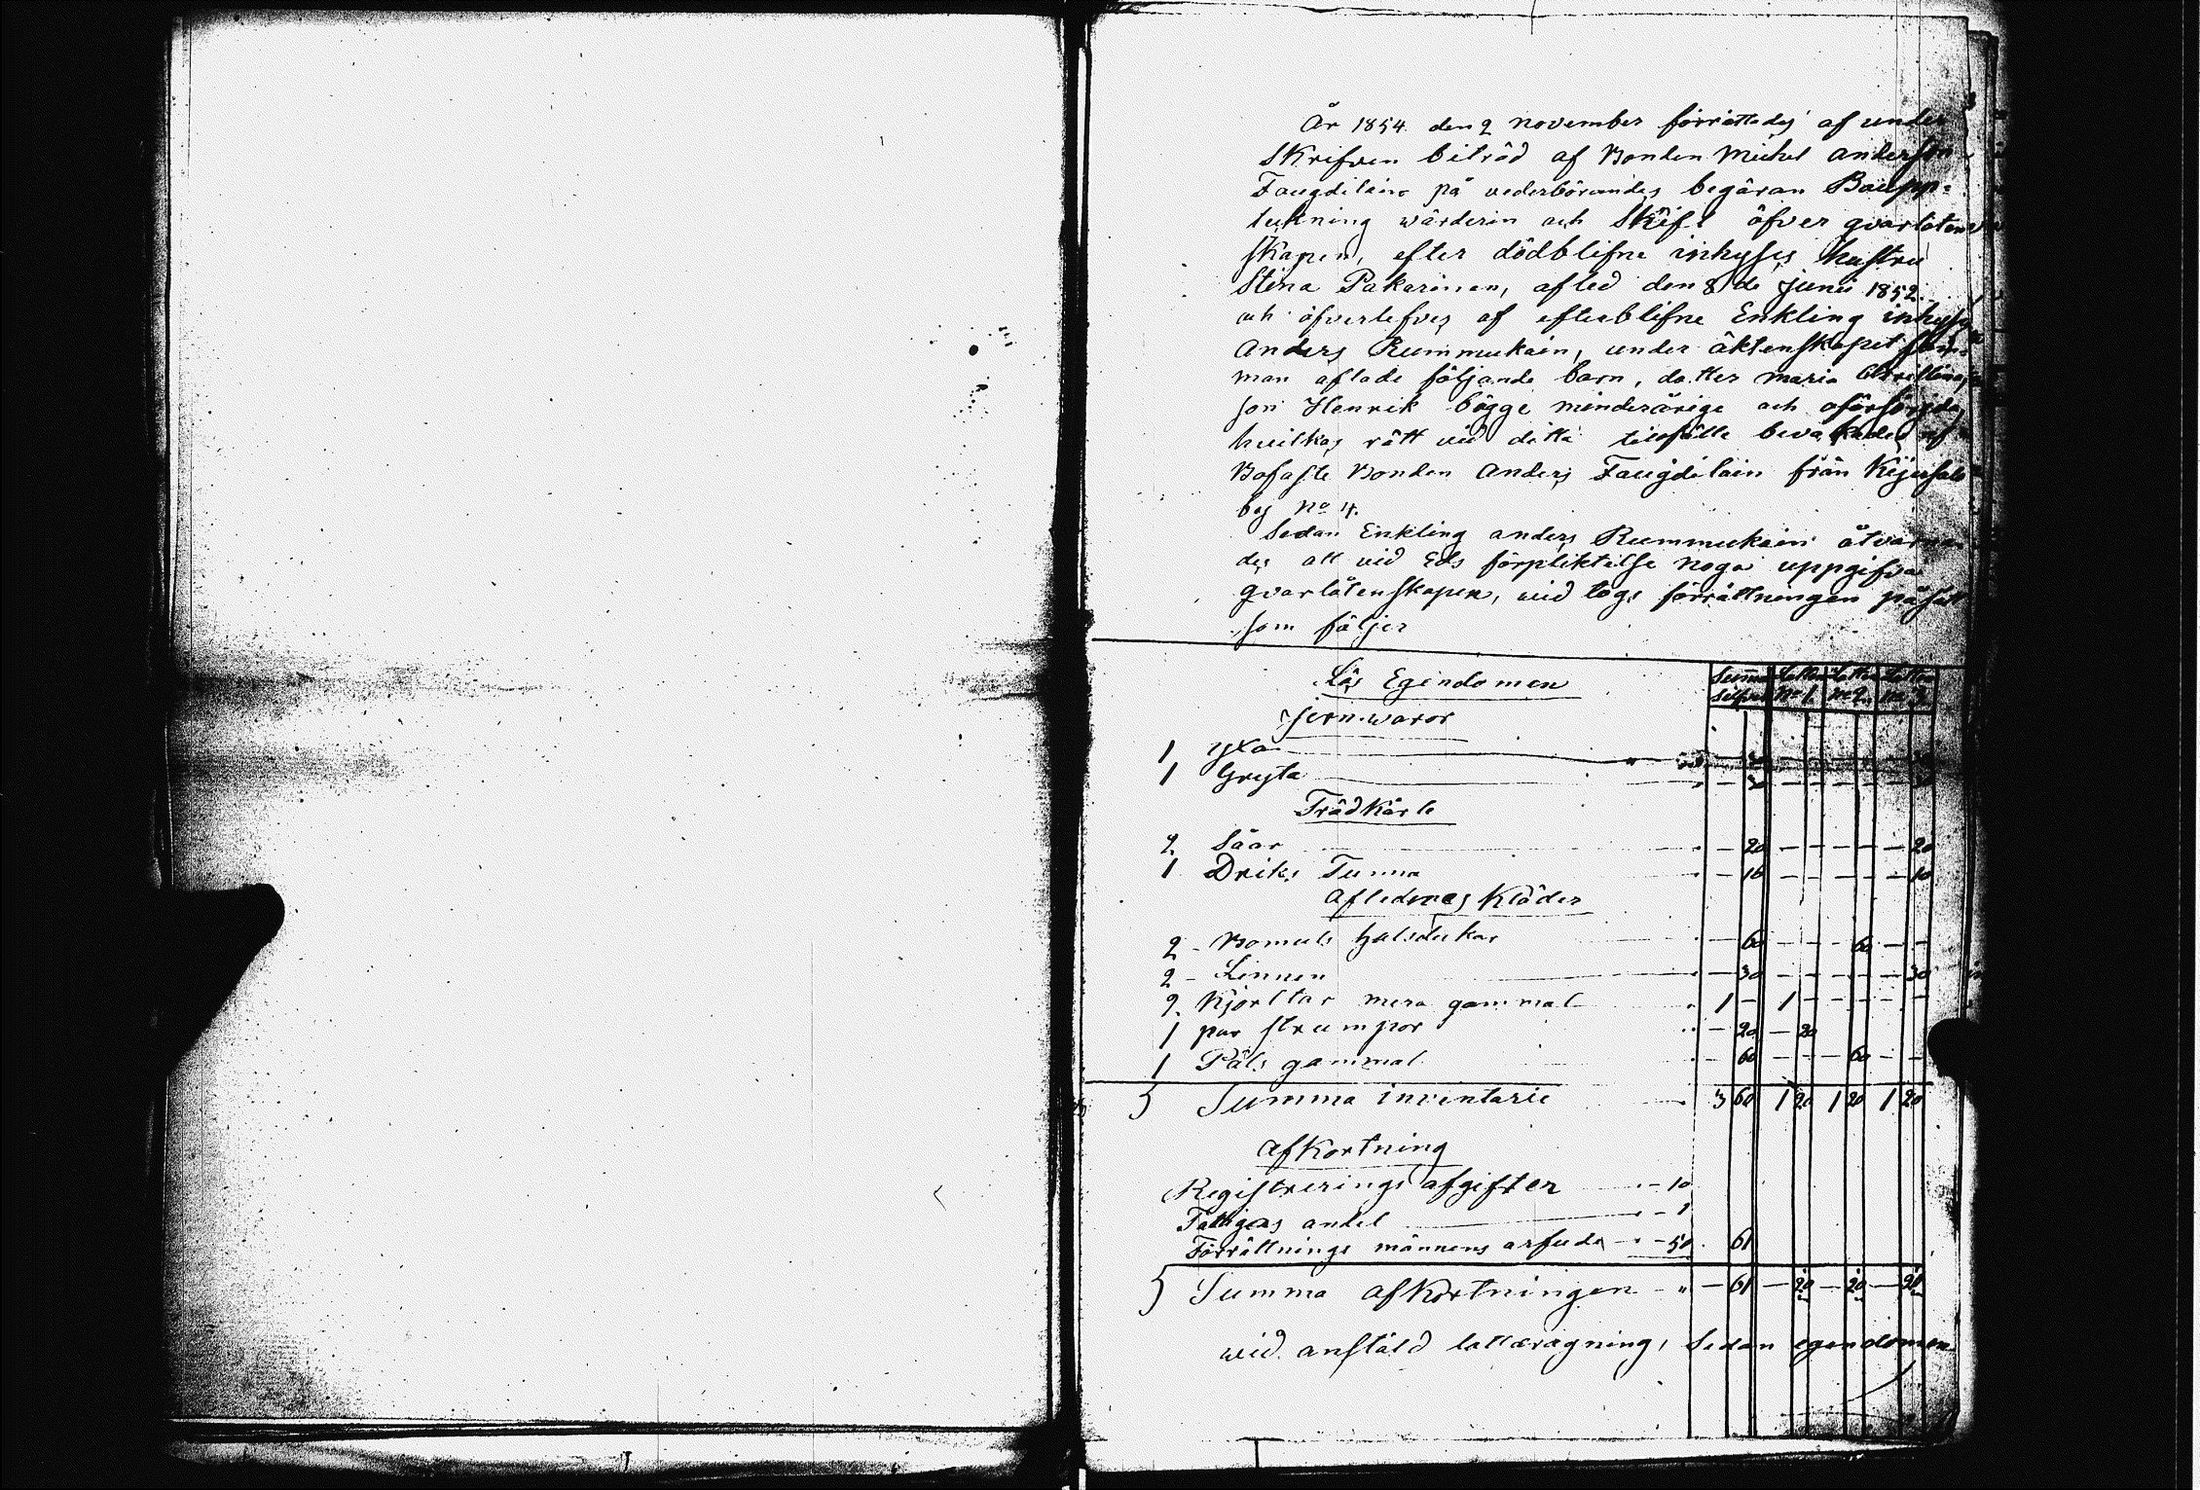 År 1854 den 2 november förrättades af under
Skrifven biträd af Bonden Michel anderson
på vederbörandes begäran Boupp=
tekning wärderin och Skift öfver qvarlåten
skapen, efter dödblifne inhyses hustru
Stina Pakarinen, afled den 8de junii 1852
och öfverlefves af efterblifne Enkling inhyses
Anders Rummukain, under äktenskapet
man aflade följande barn, dotter maria
son Henrik bägge minderårige och oförsörgda,
hvilkas rätt vid detta tillfälle bevakades af
Bofaste Bonden Anders från
by No 4.
Sedan Enkling anders Rummukain åtvarna
des att vid Eds förpliktelse noga uppgifva
qvarlåtenskapen, vid togs förrättningen påsätt
som följer
Lös Egendomen Summa Silfver Lotten No 1. Lotten No 2. Lotten No 3.
Jern waror
1 yxa " — 30 — — — — — 30
1 Gryta " — 30 — — — — — 30
Trädkärle
2 Såar " — 20 — — — — — 20
1 Driks Tunna " — 10 — — — — — 10
Aflednas Kläder
2 Bomuls halsdukar " — 60 — — — 60 — —
2 Linnen " — 30 — — — — — 30
2 Kjortlar mera gammal " 1 — 1 — — — — —
1 par strumpor " — 20 — 20
1 Päls gammal " — 60 — — — 60 — —
S Summa inventarie " 3 60 1 20 1 20 1 20
Afkortning
Registrerings afgifter " — 10
Fattigas andel " — 1
Förrättnings männens arfude " — 50 . 61
S Summa afkortningen " — 61 — 20 — 20 — 21
wid anstäld lottdragning, Sedan egendomen